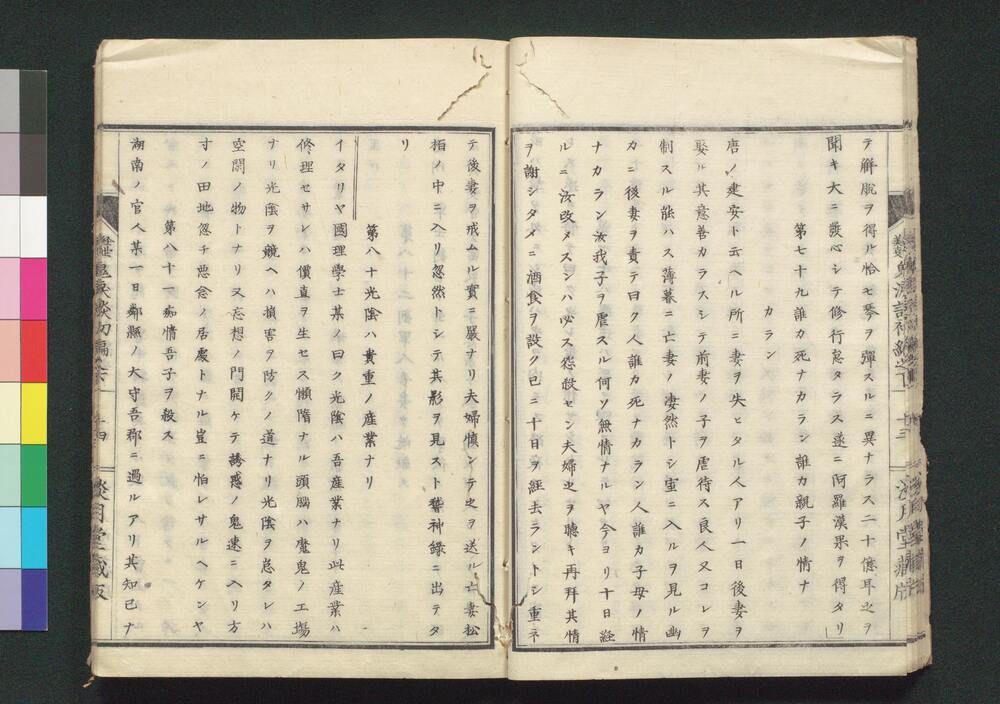 テ解脱ヲ得ル恰モ琴ヲ彈スルニ異ナラス二十億耳之ヲ
聞キ大ニ發心シテ修行怠タラス遂ニ阿羅漢果ヲ得タリ
第七十九誰カ死ナカラン誰カ親子ノ情ナ
カラン
唐ノ建安ト云ヘル所ニ妻ヲ失ヒタル人アリ一日後妻ヲ
娶ル其意善カラスシテ前妻ノ子ヲ虐待ス良人又コレヲ
制スル能ハス薄暮ニ亡妻ノ凄然トシ室ニ入ルヲ見ル幽
カニ後妻ヲ責テ曰ク人誰カ死ナカラン人誰カ子母ノ情
ナカラン汝我子ヲ虐スル何ソ無情ナルヤ今ヨリ十日経
ルニ汝改メスンハ必ス怨殺セン夫婦之ヲ聴キ再拜其情
ヲ謝シタメニ酒食ヲ設ク已ニ十日ヲ経去ラントシ重ネ
テ後妻ヲ戒ムル實ニ嚴ナリ夫婦慎ンテ之ヲ送ル亡妻松
栢ノ中ニ入リ忽然トシテ其影ヲ見スト稽神録ニ出テタ
リ
第八十光陰ハ貴重ノ産業ナリ
イタリヤ國理學士某ノ曰ク光陰ハ吾産業ナリ此産業ハ
修理セサレハ價直ヲ生セス懶惰ナル頭腦ハ魔鬼ノ工場
ナリ光陰ヲ競ヘハ損害ヲ防クノ道ナリ光陰ヲ怠タレハ
空閑ノ物トナリ又妄想ノ門開ケテ誘惑ノ鬼速ニ入リ方
寸ノ田地忽チ悪念ノ居處トナル豈ニ怕レサルヘケンヤ
第八十一痴情吾子ヲ殺ス
湖南ノ官人某一日鄰縣ノ大守吾郡ニ過ルアリ其知已ナ
十四